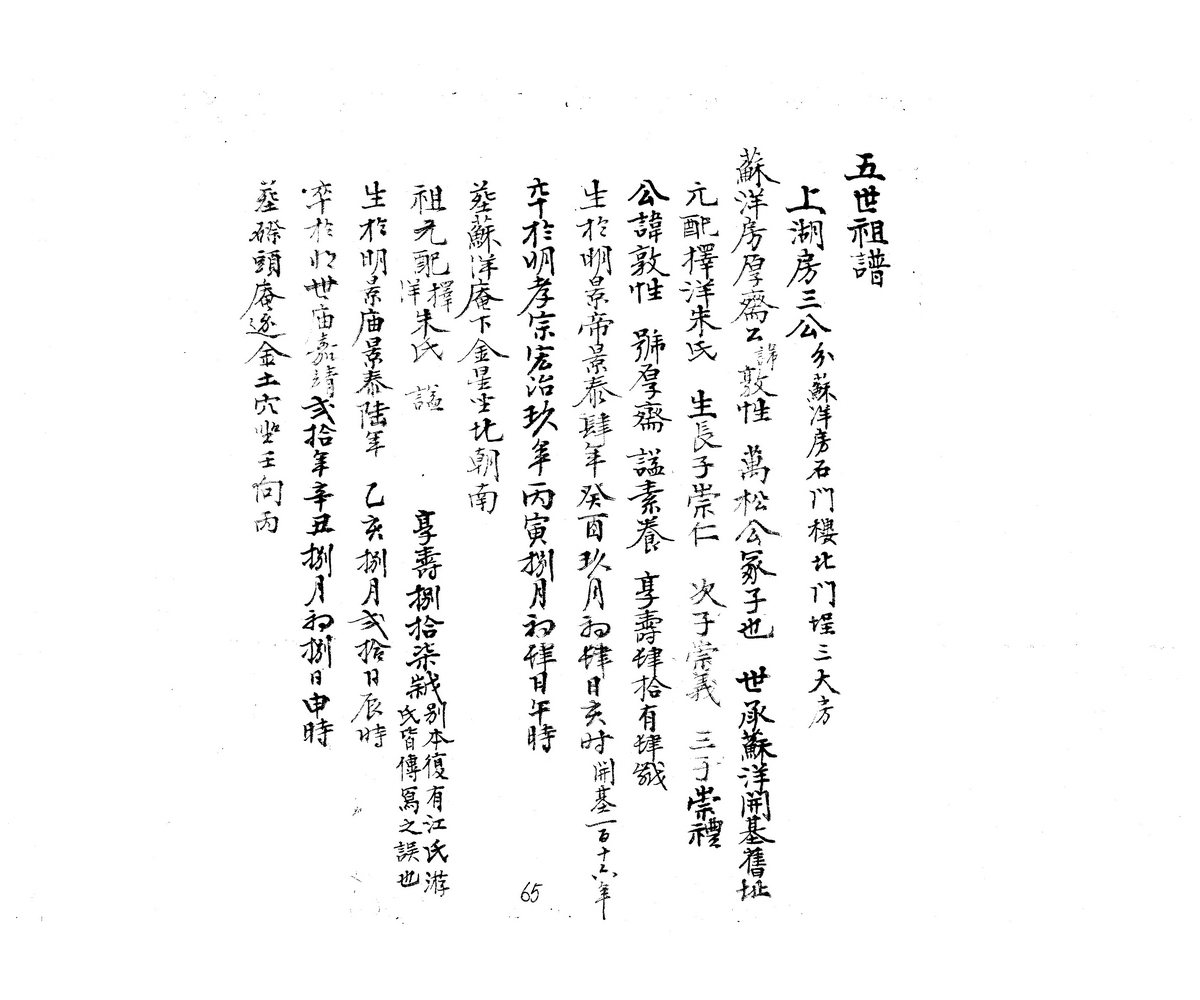 五世祖譜
上湖房三公分蘇洋房石門樓北門埕三大房
蘇洋房厚齋公諱敦性 萬松公冢子也 世承蘇洋開基舊址
元配擇洋朱氏 生長子崇仁 次子崇義 三子崇禮
公諱敦性 號厚齋 謚素養 享壽肆拾有肆歲
生於明景帝景泰肆年癸酉玖月初肆日亥时開基一百十六年
卒於明孝宗宏治玖年丙寅捌月初肆日午時
塟蘇洋庵下金星坐北朝南
祖元配擇洋朱氏 謚 享壽捌拾柒歲別本復有江氏游氏皆傳寫之誤也
生於明景庙景泰陆年 乙亥捌月弍拾日辰時
卒於明世庙嘉靖弍拾年辛丑捌月初捌日申時
塟磜頭庵邊金土穴坐壬向丙
65